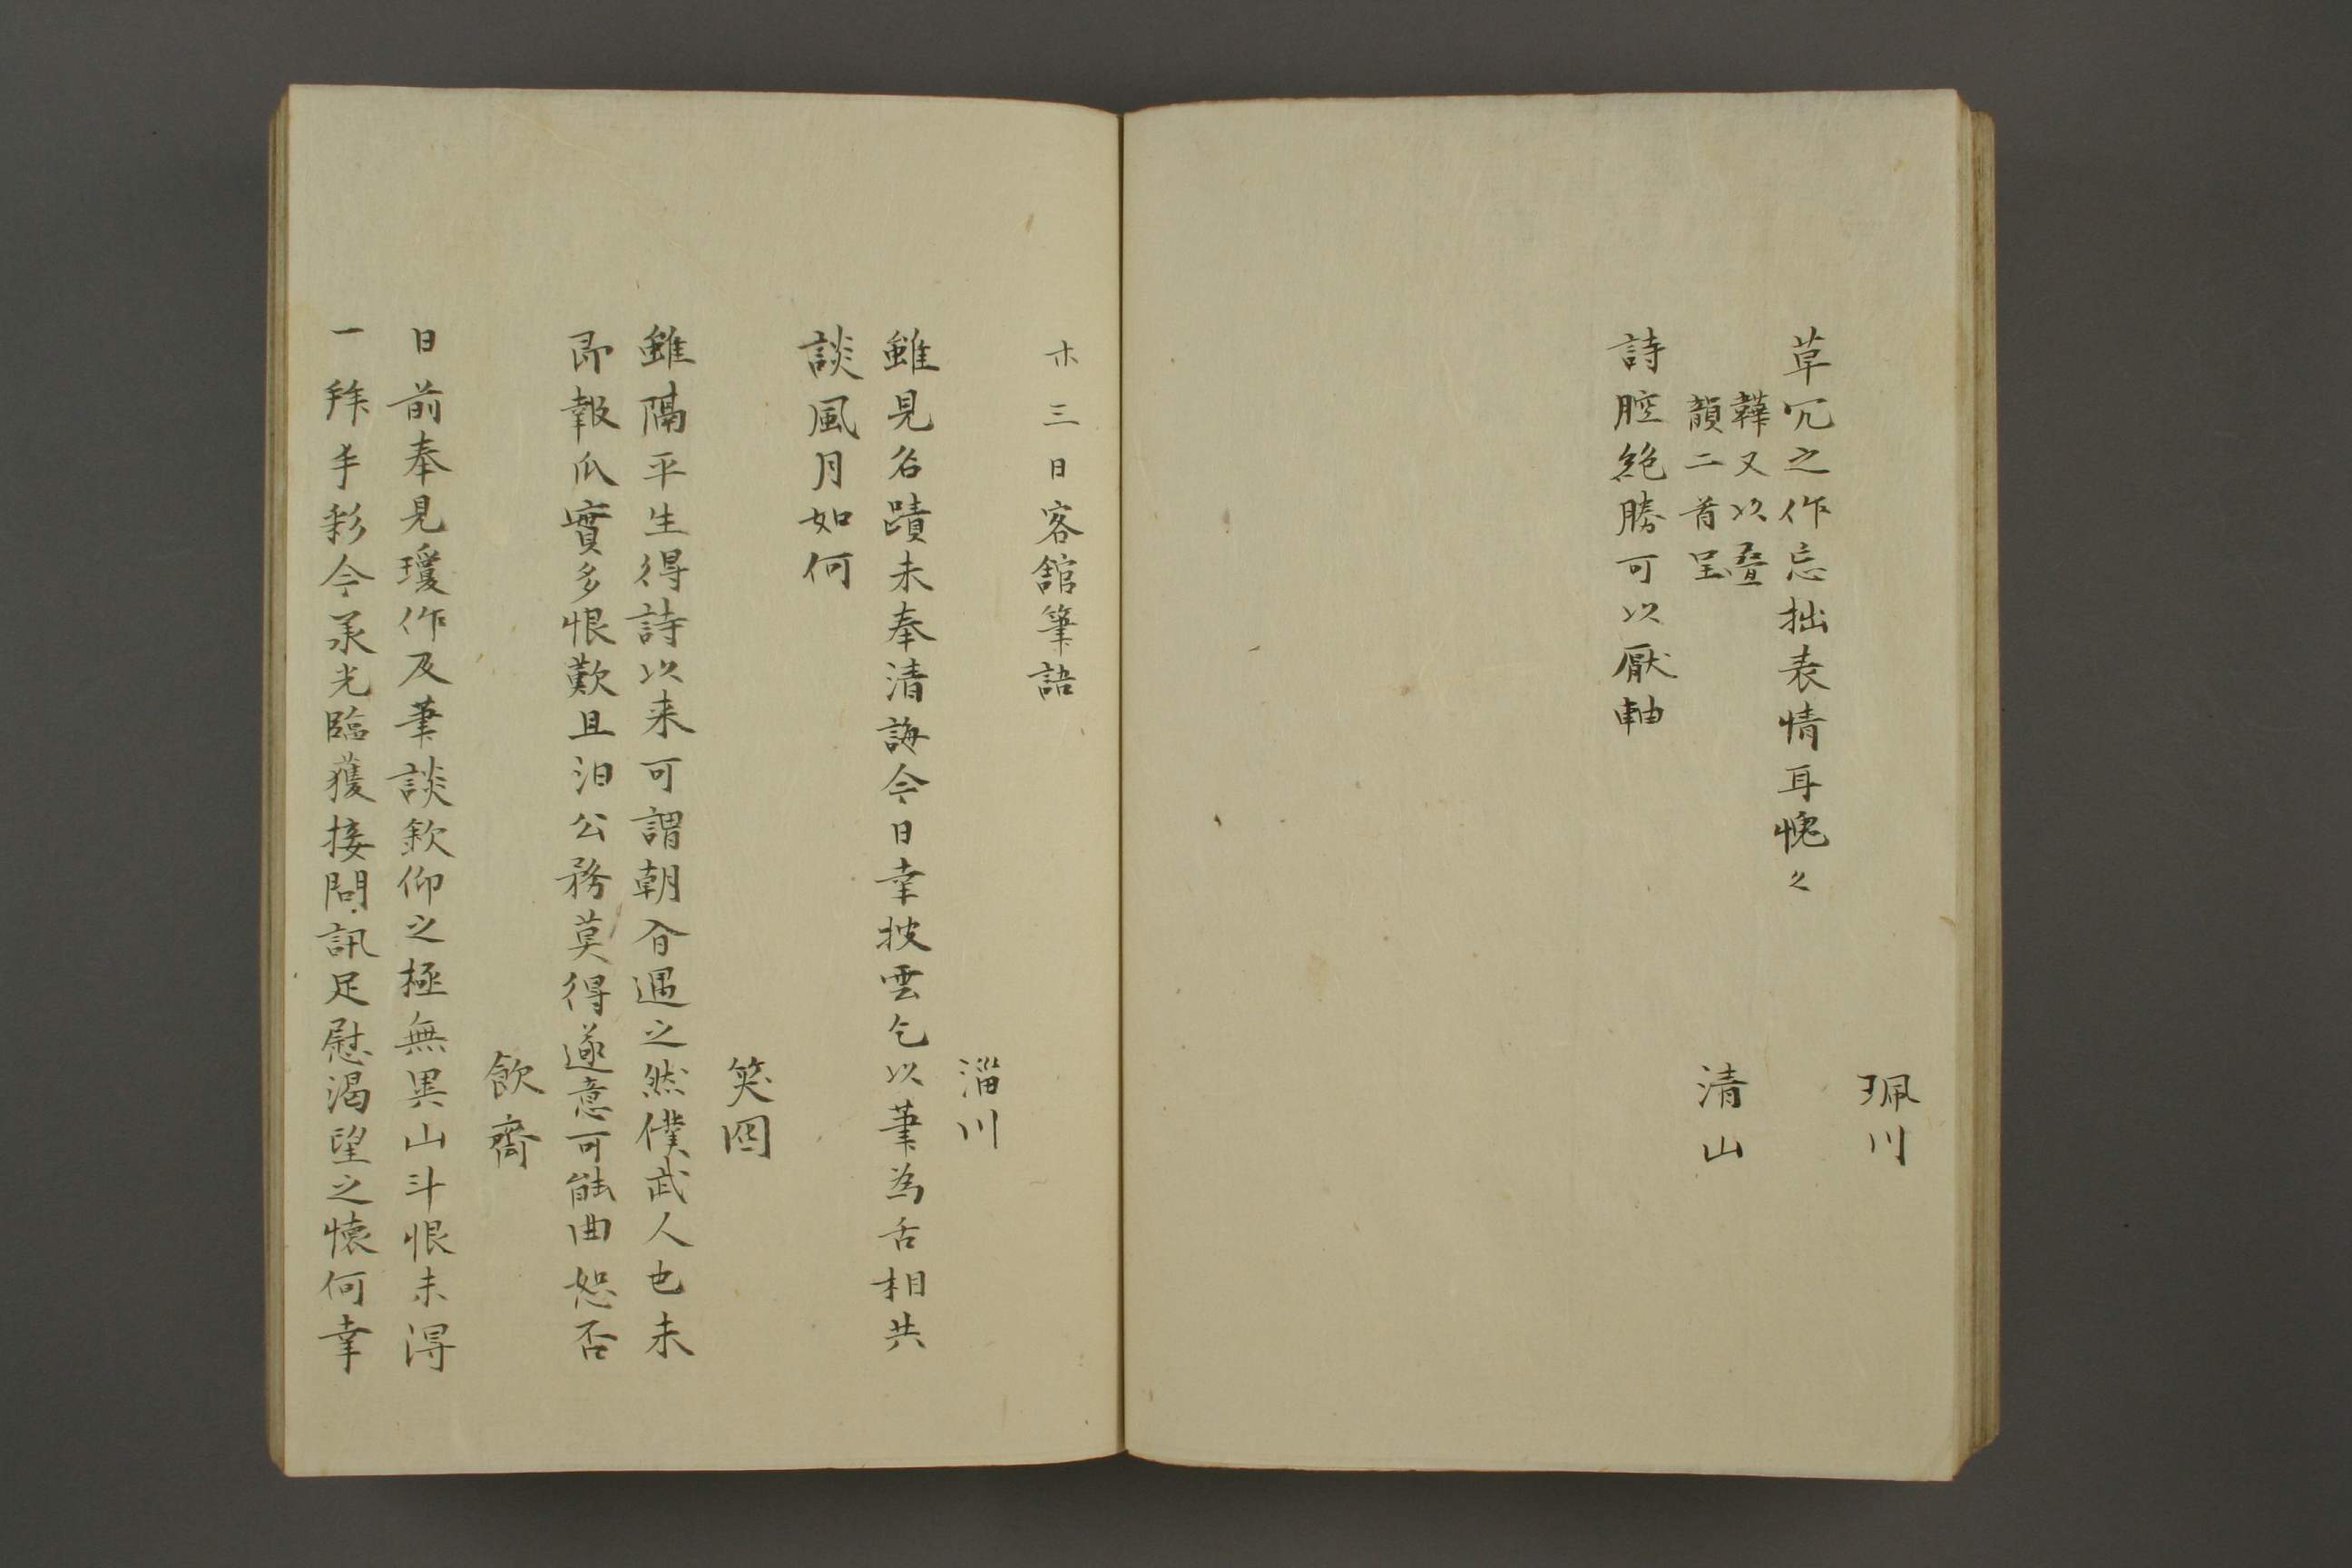 珮川
草冗之作忘拙表情耳愧々
韡又以疊
韻二首呈
清山
詩腔絶勝可以厭軸
廿三日客舘筆語
淄川
雖見名蹟未奉清誨今日幸披雲乞以筆為舌相共
談風月如何
笑囮
雖隔平生得詩以来可謂朝夕遇之然僕武人也未
即報瓜實多恨歎且汨公務莫得遂意可能曲恕否
飲齋
日前奉見瓊作及筆談欽仰之極無異山斗恨未得
一拜手彩今承光臨獲接問訊足慰渇望之懐何幸